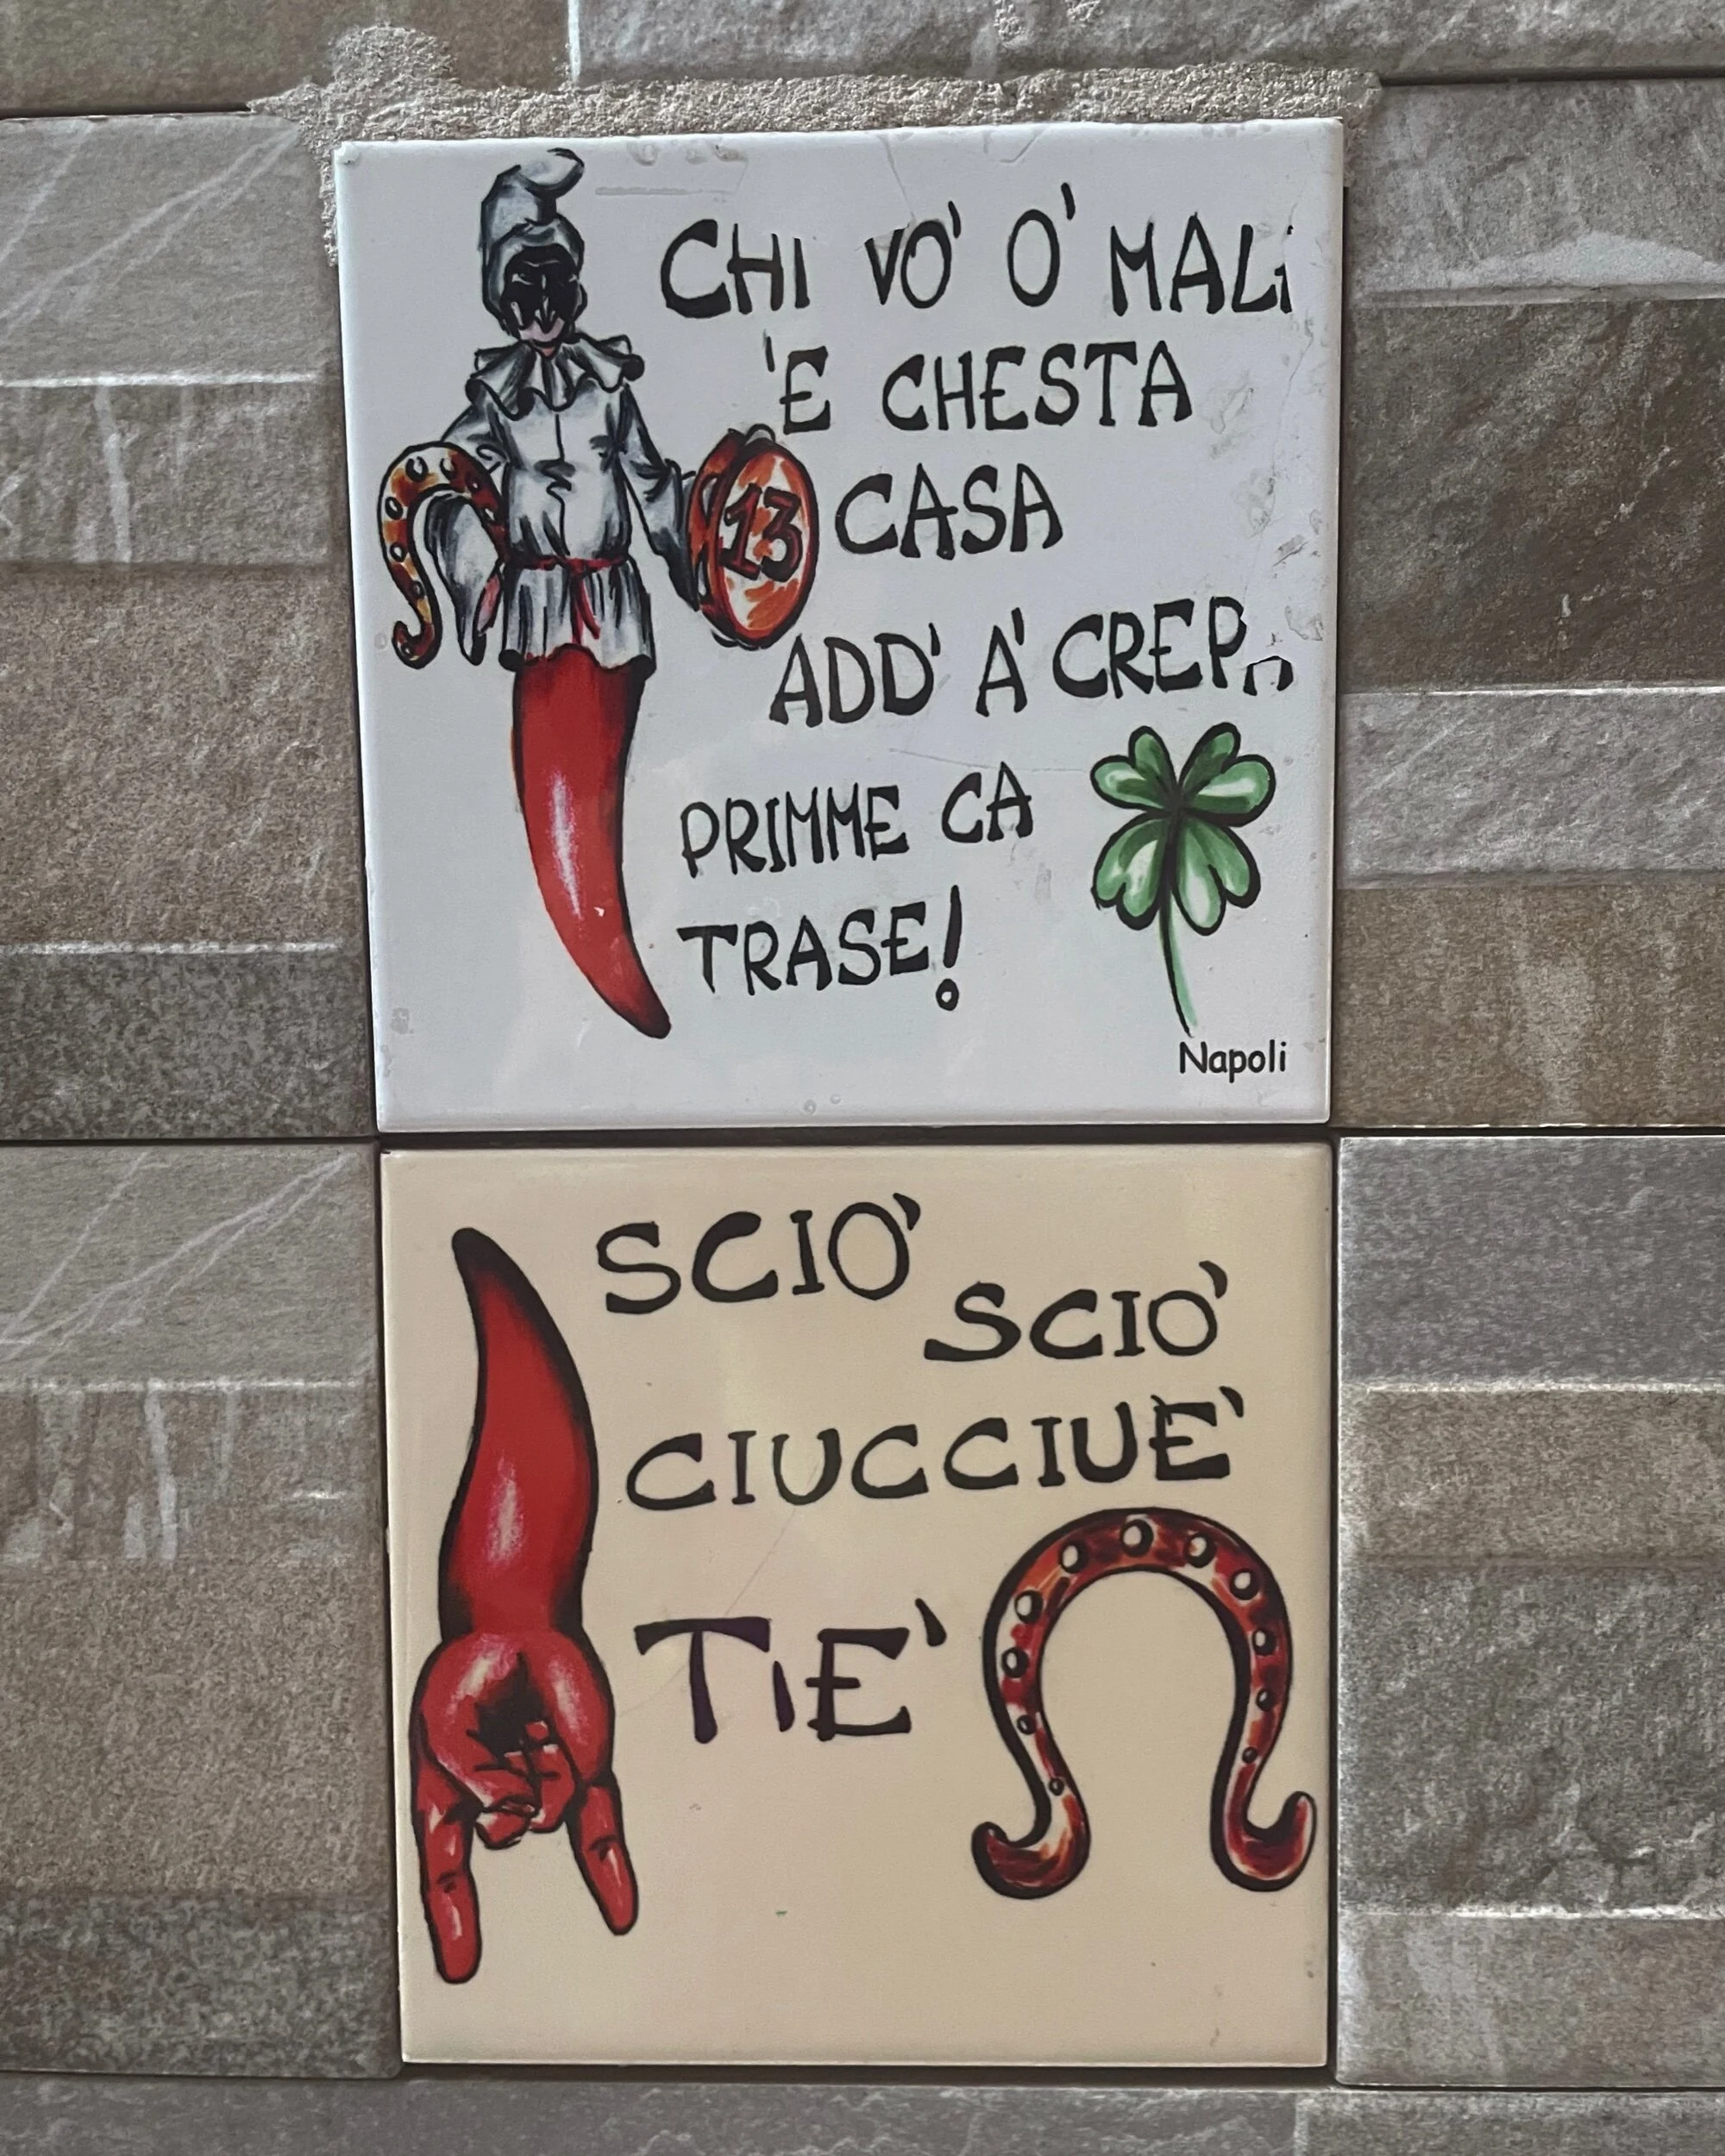 CHI VO' O' MALE
'E CHESTA
13
CASA
ADD' A' CREPA
PRIMME CA
TRASE!
Napoli
SCIO'
SCIO'
CIUCCIUE'
TIE'